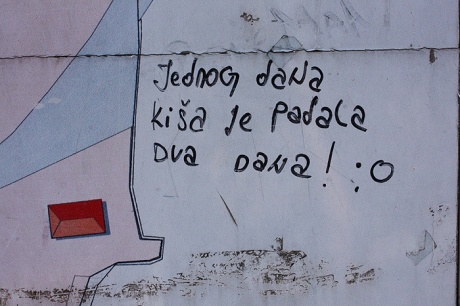 Jednog dana
kiša je padala
dva dana! :O